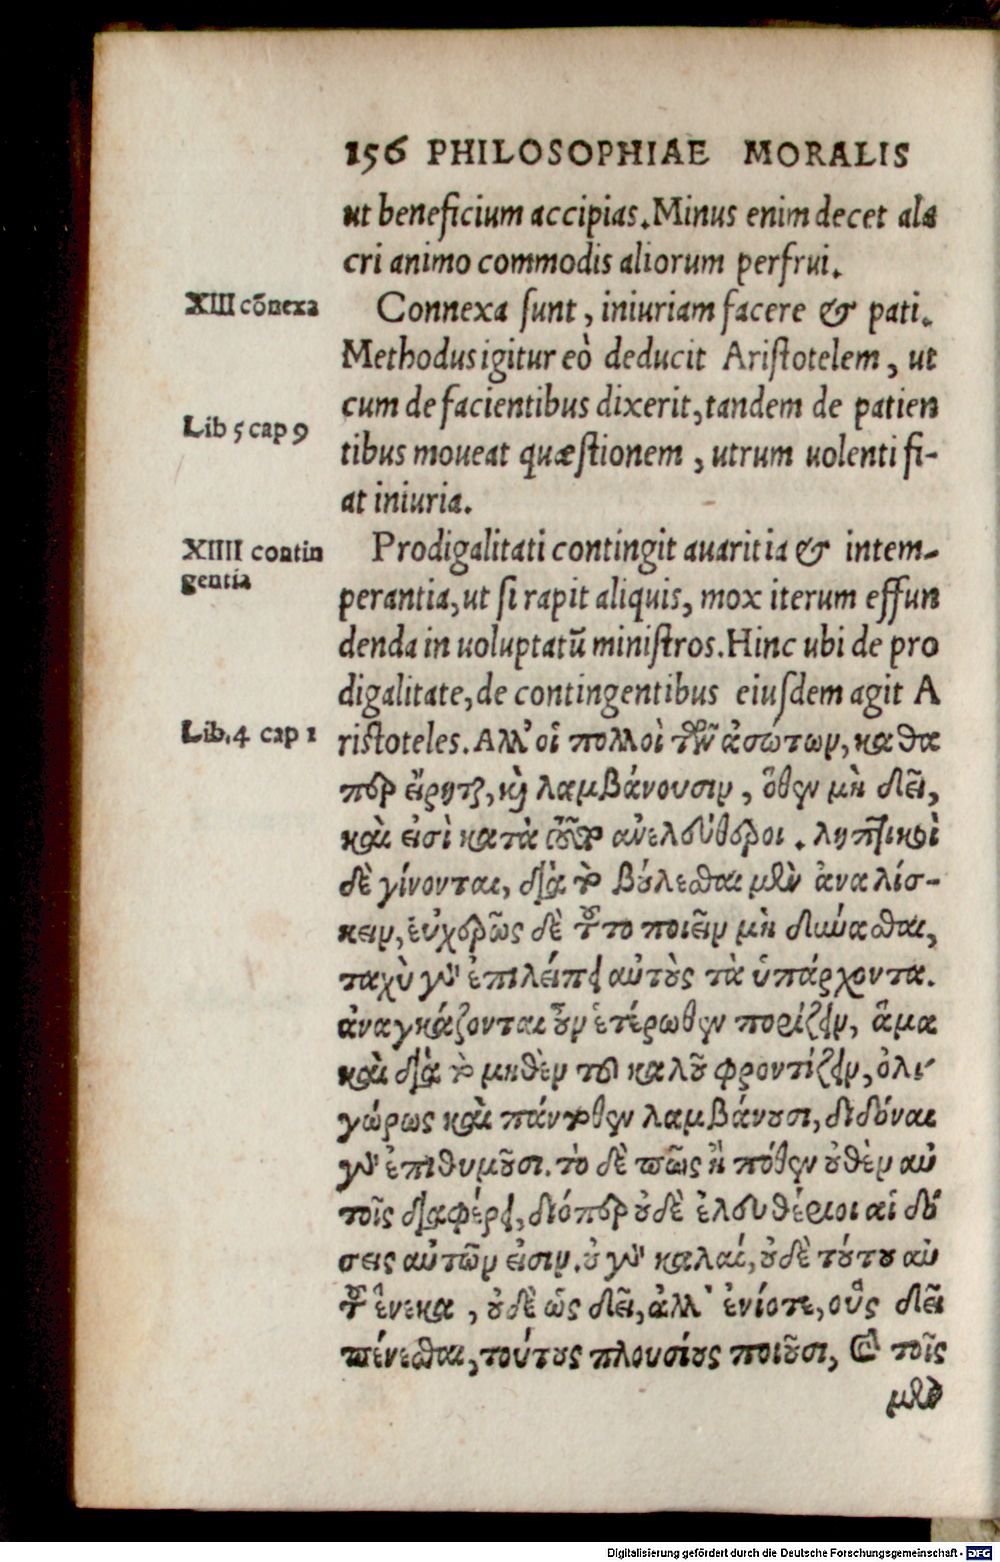 156 PHILOSOPHIAE MORALIS
ut beneficium accipias. Minus enim decet ala
cri animo commodis aliorum perfrui.
XIII cõnexa
Connexa sunt, iniuriam facere & pati.
Methodus igitur eò deducit Aristotelem, ut
cum de facientibus dixerit, tandem de patien
Lib 5 cap 9
tibus moueat quæstionem, utrum uolenti fi-
at iniuria.
XIIII contin
gentia
Prodigalitati contingit auaritia & intem-
perantia, ut si rapit aliquis, mox iterum effun
denda in uoluptatũ ministros. Hinc ubi de pro
digalitate, de contingentibus eiusdem agit A
Lib. 4 cap 1
ristoteles. Αλλ' οἱ πολλοὶ τῶν ἀσώτων, καθα
περ εἴρηται, καὶ λαμβάνουσιν, ὅθεν μὴ δεῖ,
καὶ εἰσὶ κατὰ τοῦτο ἀνελεύθεροι. ληπτικοὶ
δὲ γίνονται, διὰ τὸ βούλεσθαι μὲν ἀναλίσ-
κειν, εὐχερῶς δὲ τοῦτο ποιεῖν μὴ δύνασθαι,
ταχὺ γὰρ ἐπιλείπει αὐτοὺς τὰ ὑπάρχοντα.
ἀναγκάζονται οὖν ἑτέρωθεν πορίζειν, ἅμα
καὶ διὰ τὸ μηθὲν τοῦ καλοῦ φροντίζειν, ὀλι
γώρως καὶ πάντοθεν λαμβάνουσι, διδόναι
γὰρ ἐπιθυμοῦσι. τὸ δὲ πῶς ἢ πόθεν οὐθὲν αὐ
τοῖς διαφέρει, διόπερ οὐδὲ ἐλευθέριοι αἱ δό
σεις αὐτῶν εἰσιν. οὐ γὰρ καλαί, οὐδὲ τούτου αὐ
τοῦ ἕνεκα, οὐδὲ ὡς δεῖ, ἀλλ' ἐνίοτε, οὓς δεῖ
πένεσθαι, τούτους πλουσίους ποιοῦσι, καὶ τοῖς
μὲν
Digitalisierung gefördert durch die Deutsche Forschungsgemeinschaft - DFG